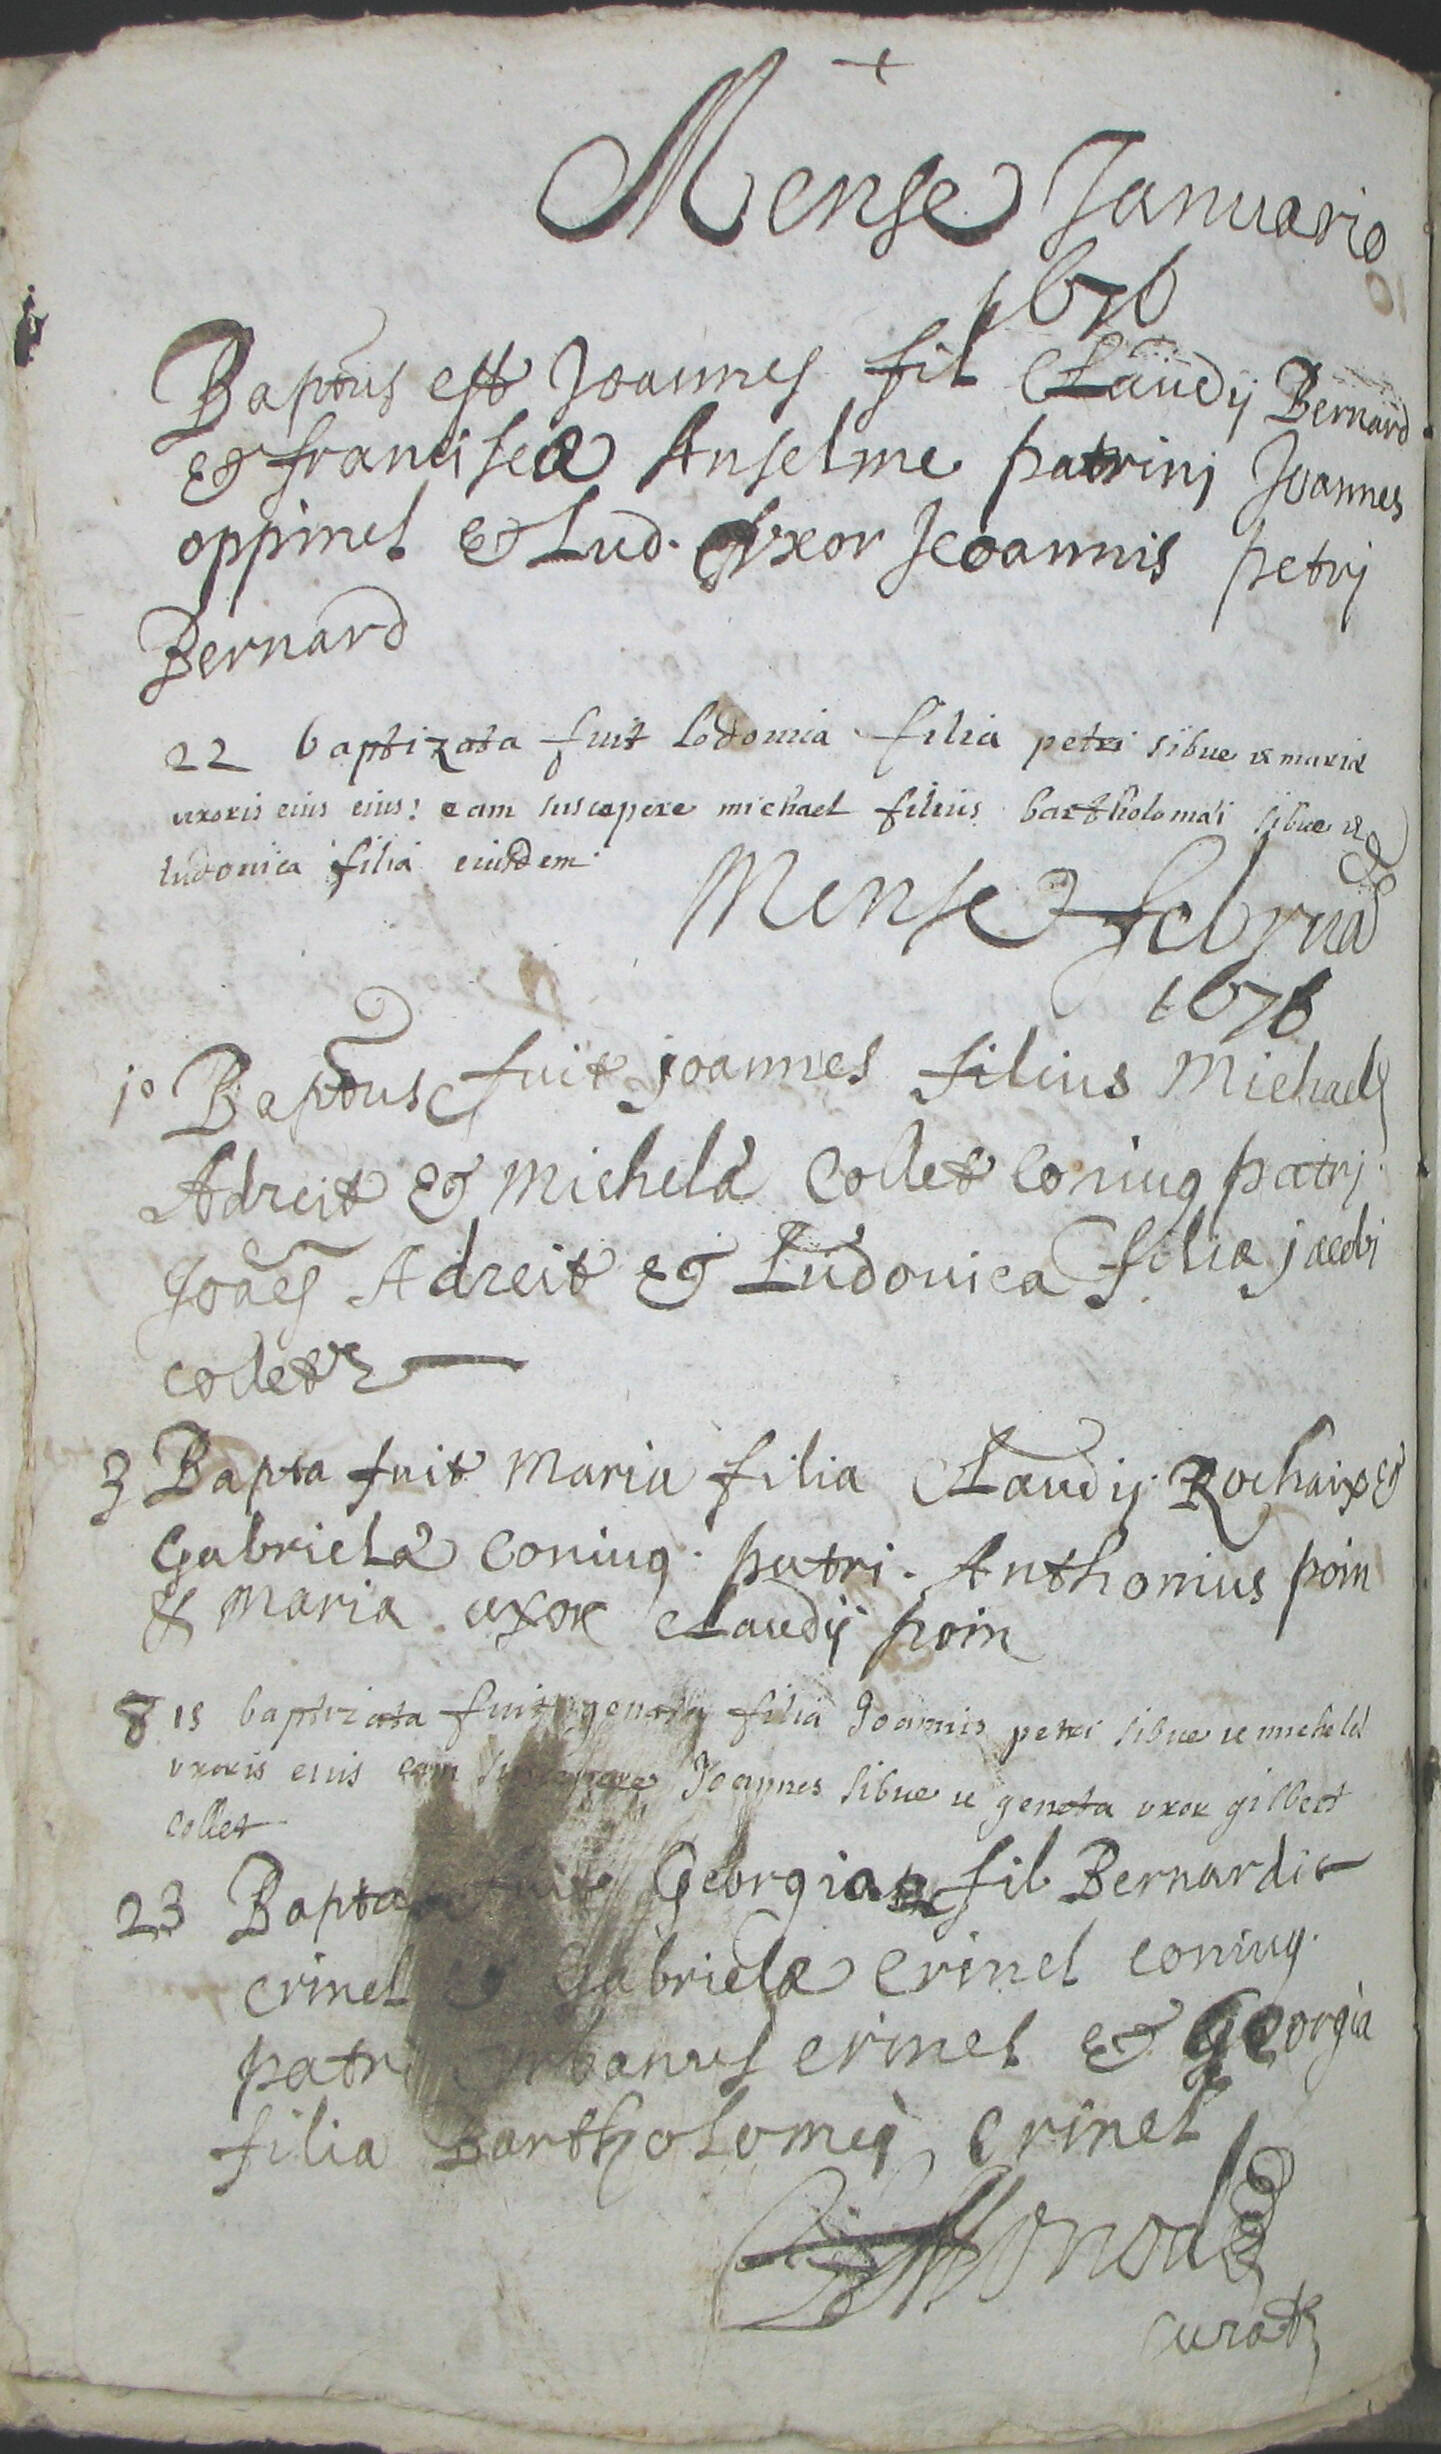 +
Mense Januario
1676
Baptus est Joannes fil Claudij Bernard
& franciscæ Anselme patrinj Joannes
oppinel & Lud. Vxor Jeoannis petrj
Bernard
22 baptizata fuit lodouica filia petri sibue & mariæ
uxoris eius eius: eam suscepere michael filius bartholomæi sibue &
ludouica filia eiusdem
Mense februa
1676
1o Baptus fuit joannes filius Michaelis
Adreit & Michelæ Collet Coniug patrj.
Joães Adreit & Ludouica filia jacobi
Collet
3 Bapta fuit Maria filia Claudij Rochaix &
Gabrielæ Coniug. patri. Anthonius poin
& Maria uxor Claudij poin
8 is baptizata fuit geneta filia Joannis petri sibue & michelæ
vxoris eius eam suscepere Joannes sibue & geneta vxor gilbert
Collet
23 Bapta fuit Georgia fil Bernardi
Crinel & Gabrielæ Crinel Coniug.
patri Vrbanus Crinel & Georgia
filia Bartholomej Crinel
Curat